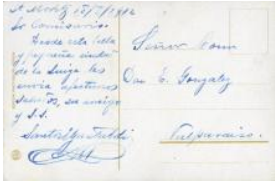 St. Moritz 15/2/1912
Sr. Comisario.
Desde esta bella
y pequeña ciudad
de la Suiza les
envía afectuosos
saludos, su amigo
y S.S.
Señor Don
E. Gonzalez
Valparaiso.